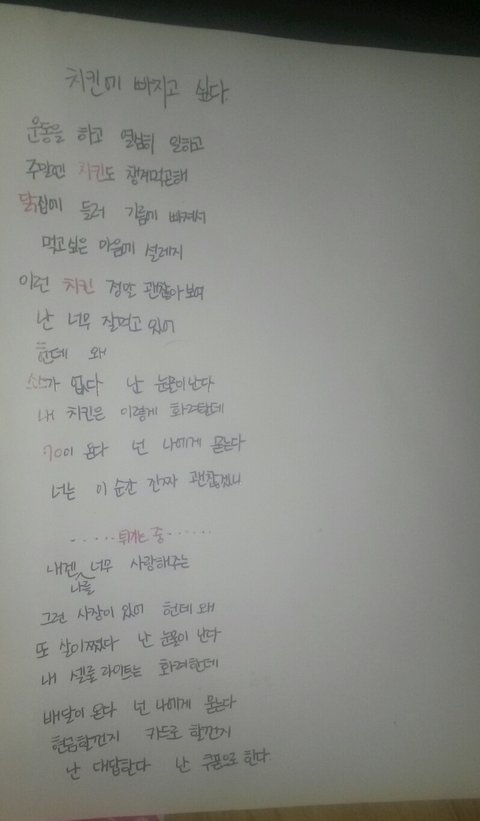 치킨에 빠지고 싶다.
운동을 하고 열심히 일하고
주말엔 치킨도 챙겨먹곤해
닭집에 들러 기름에 빠져서
먹고싶은 마음에 설레지
이런 치킨 정말 괜찮아보여
난 너무 잘먹고 있어
헌데 왜
소스가 없다 난 눈물이 난다
내 치킨은 이렇게 화려한데
70이 온다 넌 나에게 묻는다
너는 이 순간 진짜 괜찮겠니
······튀기는 중······
내겐 나를 너무 사랑해주는
그런 사람이 있어 헌데 왜
또 살이쪘다 난 눈물이 난다
내 셀룰라이트는 화려한데
배달이 온다 넌 나에게 묻는다
현금할껀지 카드로 할껀지
난 대답한다 난 쿠폰으로 한다.